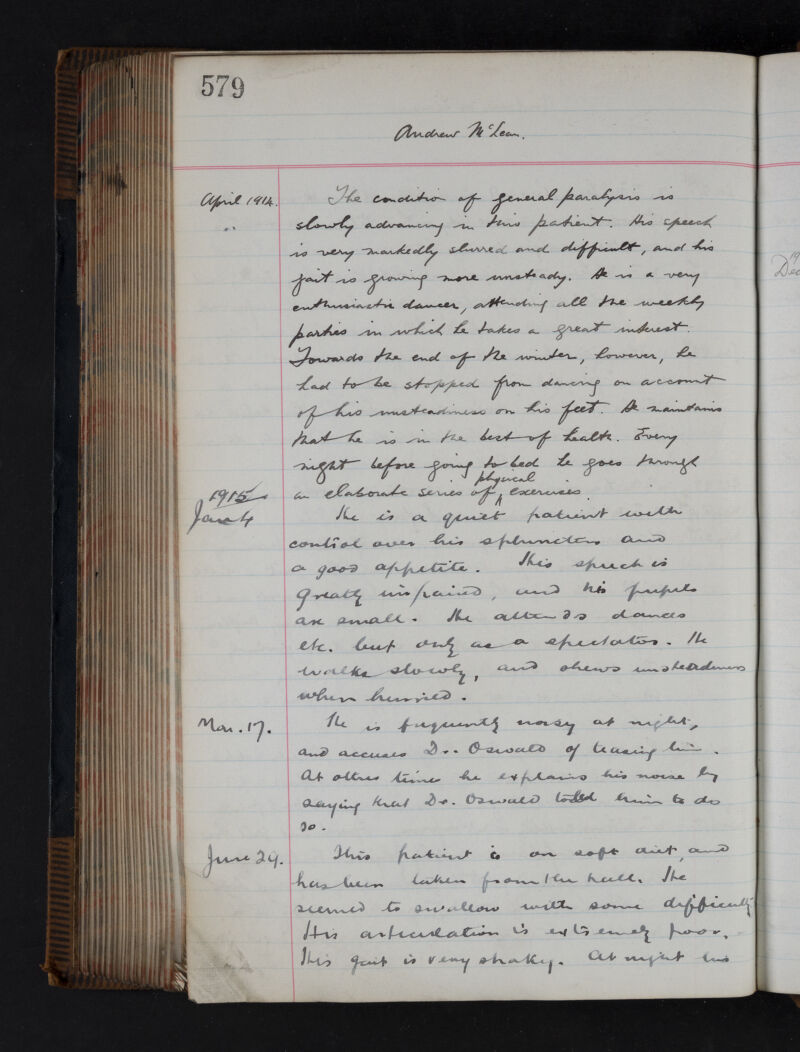 579
Andrew McLean.
April 1914. The condition of general paralysis is
slowly advancing in this patient. His speech
is very markedly slurred and difficult, and his
gait is growing more unsteady. He is a very
enthusiastic dancer, attending all the weekly
parties in which he takes a great interest.
Towards the end of the winter, however, he
had to be stopped from dancing on account
of his unsteadiness on his feet. He maintains
that he is in the best of health. Every
night before going to bed he goes through
an elaborate series of physical exercises.
1915
Jan 4 He is a quiet patient with
control over his sphincters and
a good appetite. His speech is
greatly impaired, and his pupils
are small. He attends dances
etc. but only as a spectator. He
walks slowly, and shews unsteadiness
when hurried.
Mar. 17. He is frequently noisy at night,
and accuses Dr. Oswald of teasing him.
At other times he explains his noise by
saying that Dr. Oswald told him to do
so.
June 29. This patient is on soft diet, and
has been taken from the hall. He
seemed to swallow with some difficulty
His articulation is extremely poor.
His gait is very shaky. At night his
19
Dec